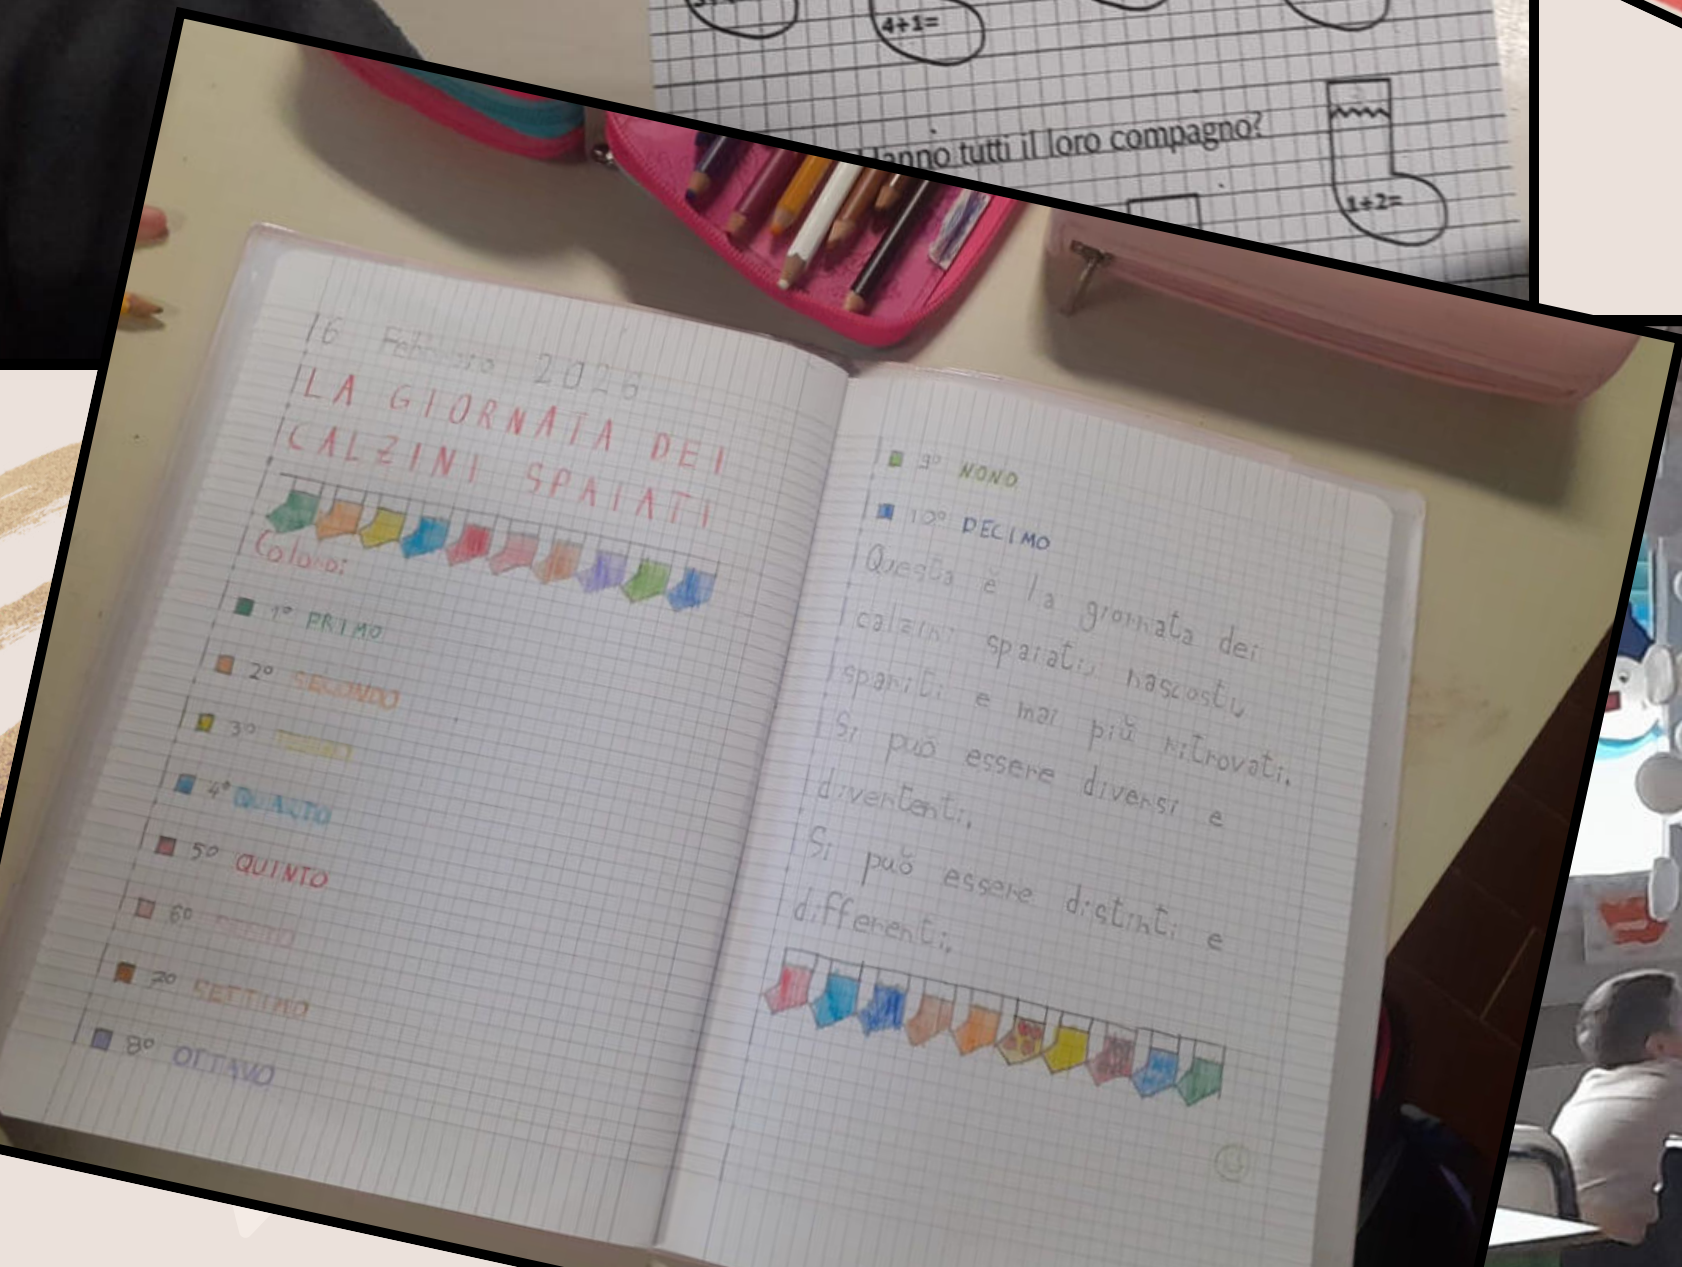 4+1=
Hanno tutti il loro compagno?
1+2=
6 Febbraio 2026
LA GIORNATA DEI
CALZINI SPAIATI
Colora:
1° PRIMO
2° SECONDO
3° TERZO
4° QUARTO
5° QUINTO
6° SESTO
7° SETTIMO
8° OTTAVO
9° NONO
10° DECIMO
Questa è la giornata dei
calzini spaiati, nascosti,
spariti e mai più ritrovati.
Si può essere diversi e
divertenti,
Si può essere distinti e
differenti.